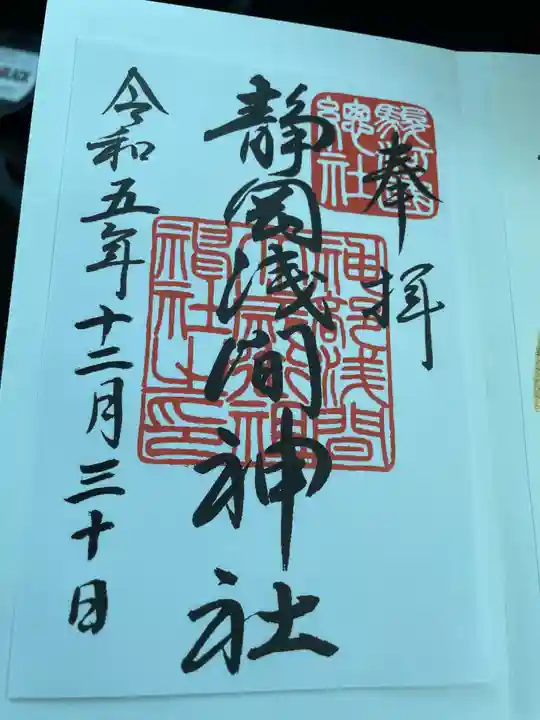 奉拝
駿河國
總社
静岡浅間神社
神部浅間
禰社之印
令和五年十二月三十日